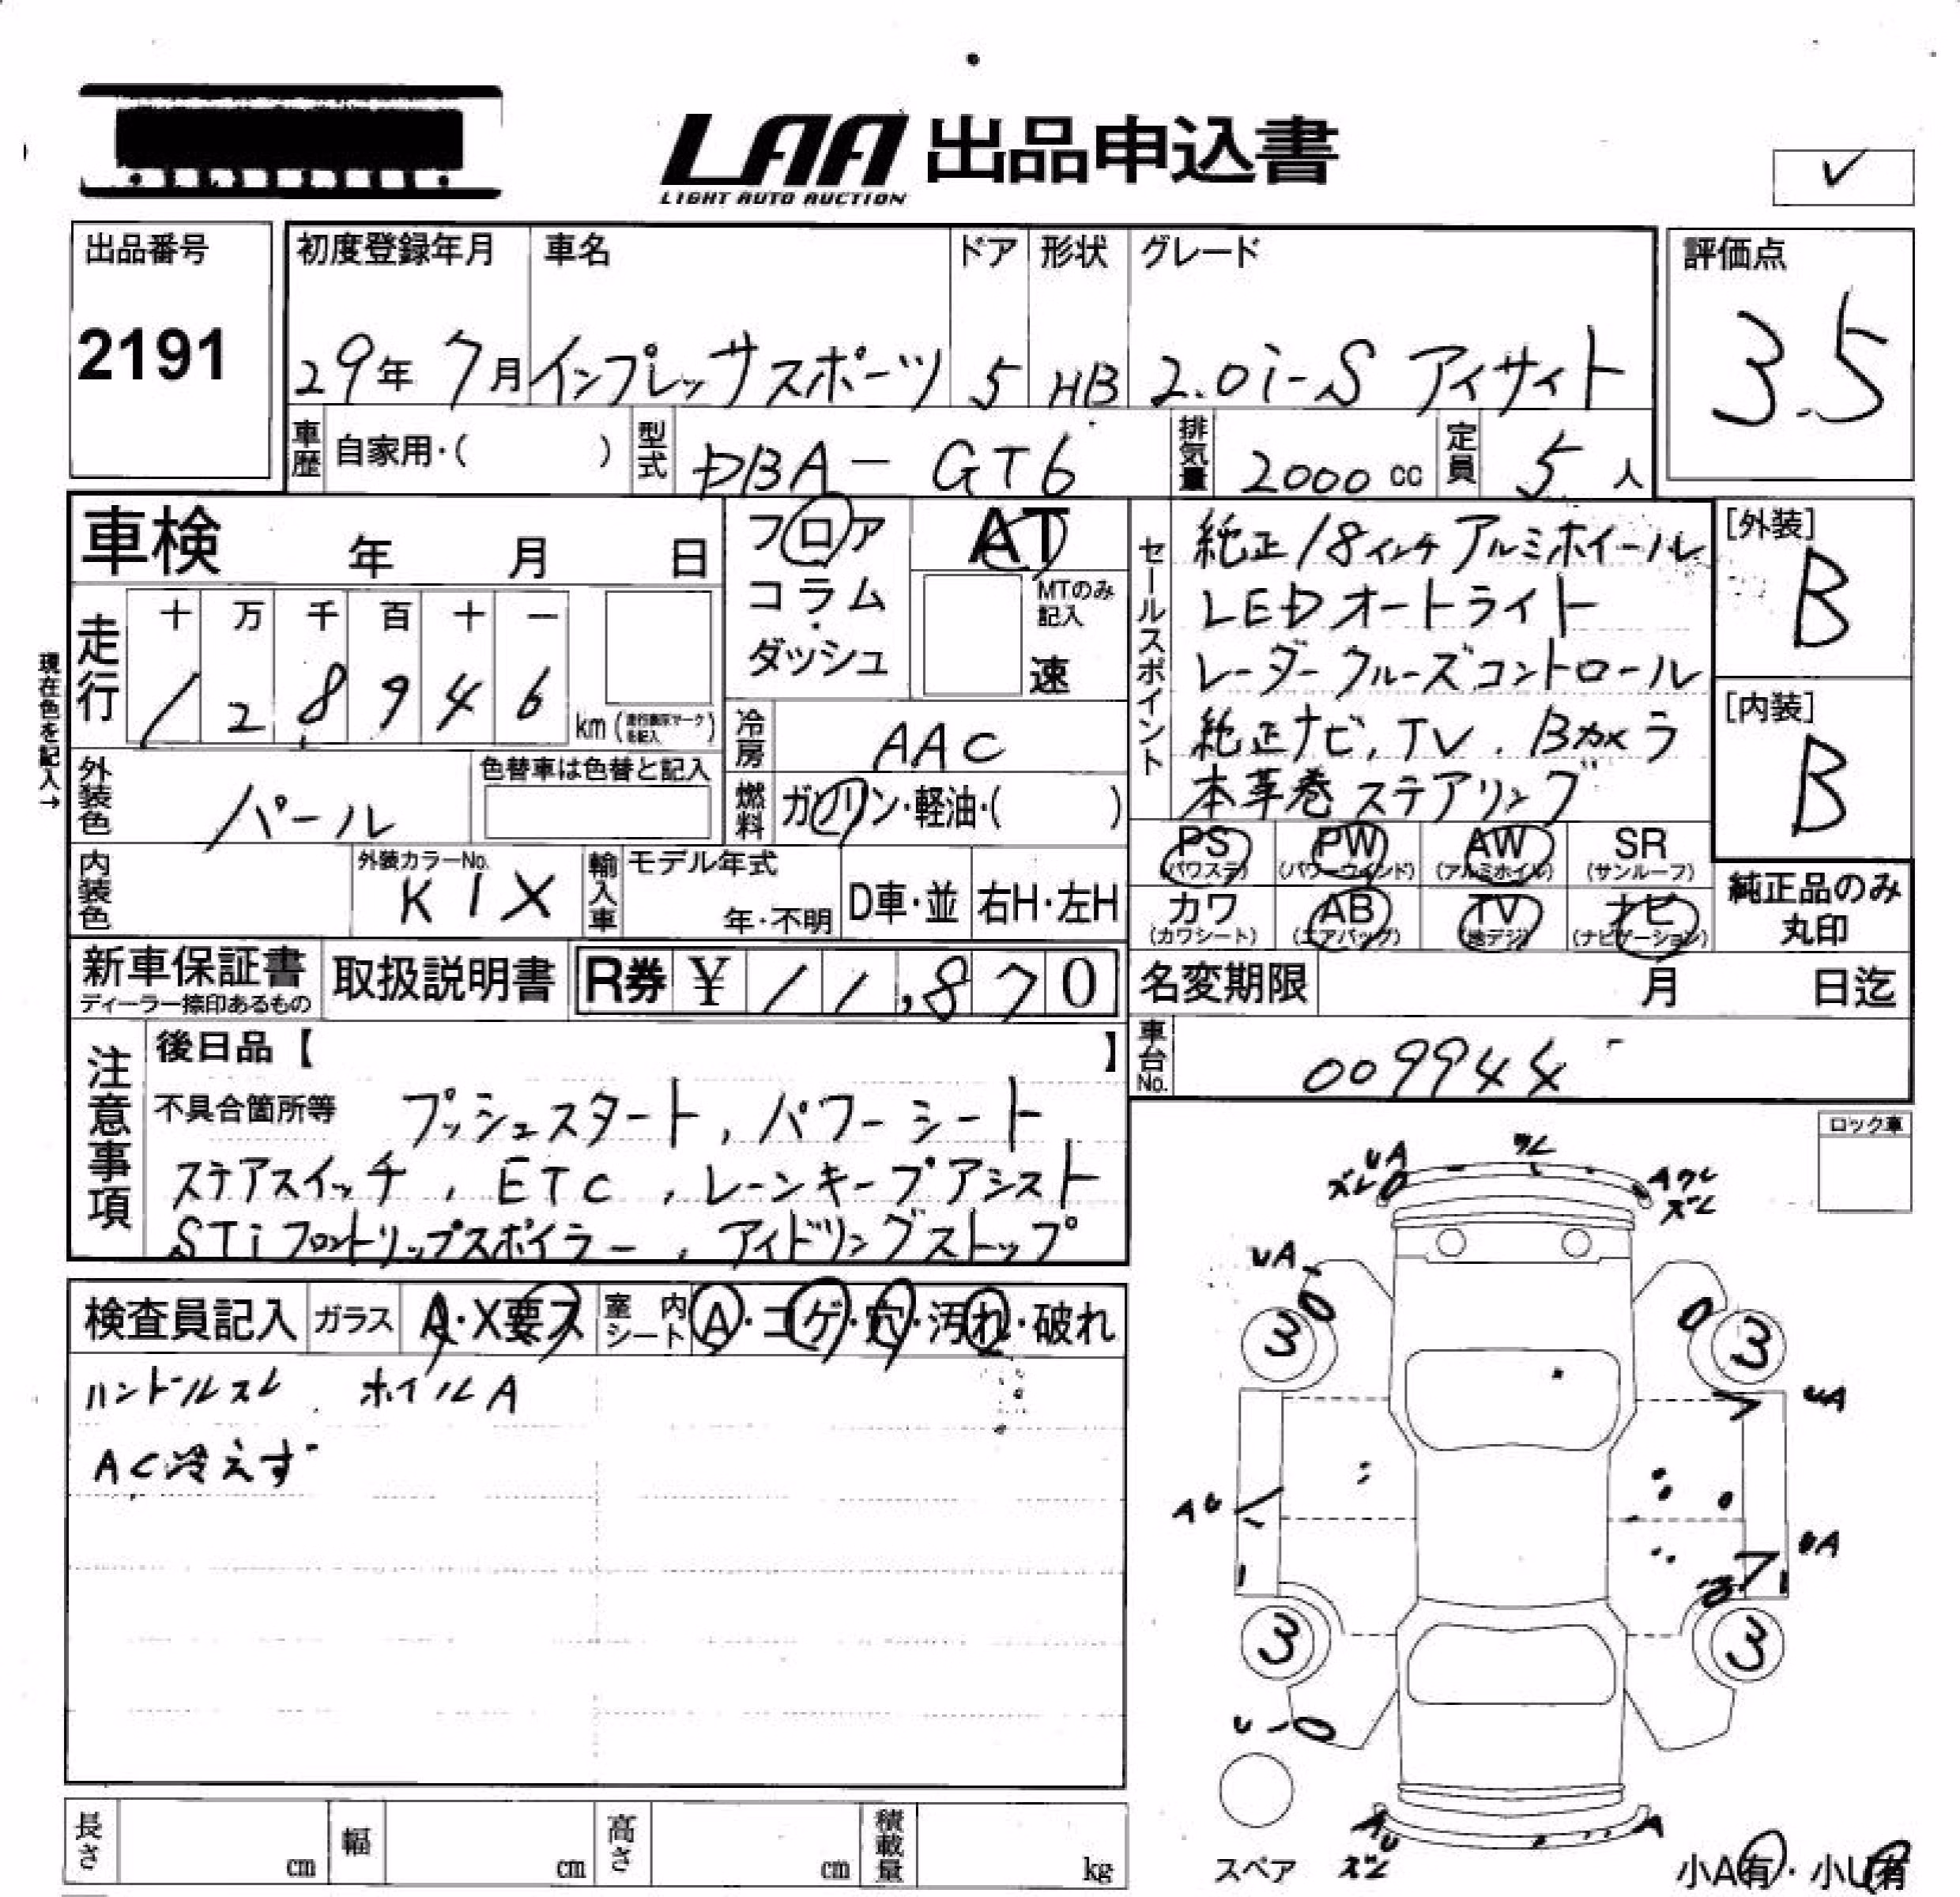 LAA 出品申込書
LIGHT AUTO AUCTION
出品番号
2191
初度登録年月
29年 7月
車名
インプレッサスポーツ
ドア
5
形状
HB
グレード
2.0i-S アイサイト
評価点
3.5
車歴 自家用・( )
型式 DBA-GT6
排気量 2000 cc
定員 5 人
車検 年 月 日
フロア
コラム
・
ダッシュ
AT
MTのみ
記入
速
現在色を記入→
走行
十 万 千 百 十 一
1 2 8 9 4 6
km
冷房 AAC
燃料 ガソリン・軽油・( )
外装色 パール
色替車は色替と記入
内装色
外装カラーNo.
K1X
輸入車
モデル年式
年・不明
D車・並
右H・左H
セールスポイント
純正18インチアルミホイール
LEDオートライト
レーダークルーズコントロール
純正ナビ, TV, Bカメラ
本革巻ステアリング
[外装]
B
[内装]
B
PS
(パワステ)
PW
(パワーウィンド)
AW
(アルミホイル)
SR
(サンルーフ)
カワ
(カワシート)
AB
(エアバッグ)
TV
(地デジ)
ナビ
(ナビゲーション)
純正品のみ
丸印
新車保証書
ディーラー捺印あるもの
取扱説明書
R券 ¥ 11,870
名変期限 月 日迄
車台No. 009944
注意事項
後日品【 】
不具合箇所等 プッシュスタート, パワーシート
ステアスイッチ, ETC, レーンキープアシスト
STiフロントリップスポイラー, アイドリングストップ
ロック車
検査員記入
ガラス A・X要ス
室内シート A・コゲ・穴・汚れ・破れ
ハンドルスレ ホイルA
AC冷えず
UA
ズレ
ワレ
Aワレ
ズレ
UA
3
3
UA
AU
UA
3
3
U
AU
ズレ
A
スペア
小A有・小U有
長さ cm
幅 cm
高さ cm
積載量 kg